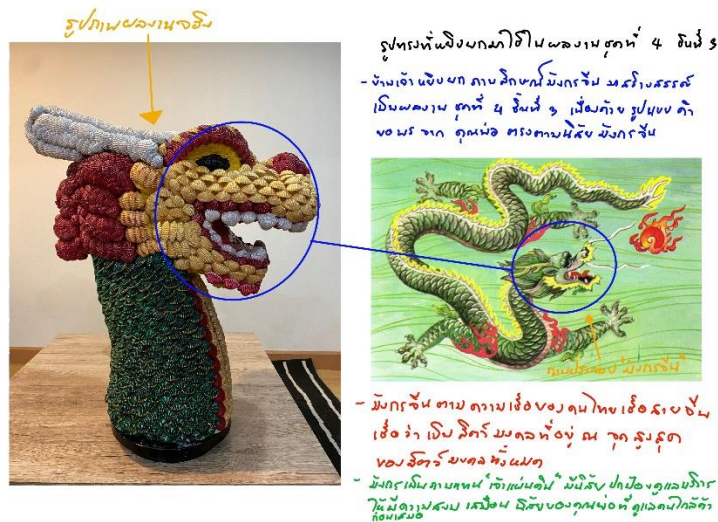 รูปภาพผลงานจริง
รูปทรงที่หยิบยกมาใช้ในผลงานชุดที่ 4 ชิ้นที่ 3
- ข้าพเจ้าหยิบยก ภาพลักษณ์มังกรจีน มาสร้างสรรค์
เป็นผลงาน ชุดที่ 4 ชิ้นที่ 3 เนื่องด้วย รูปแบบ คำ
อวยพร จาก คุณพ่อ ตรงตามนิสัย มังกรจีน
ภาพประกอบ "มังกรจีน"
- มังกรจีน ตามความเชื่อของคนไทยเชื้อสายจีน
เชื่อว่า เป็นสัตว์มงคลที่อยู่ ณ จุดสูงสุด
ของสัตว์มงคลทั้งหมด
- มังกรเป็นตัวแทน "เจ้าแผ่นดิน" มีนิสัย ปกป้องดูแลบริวาร
ให้มีความสงบ เสมือน นิสัยของคุณพ่อที่ดูแลคนใกล้ตัว
ก่อนเสมอ